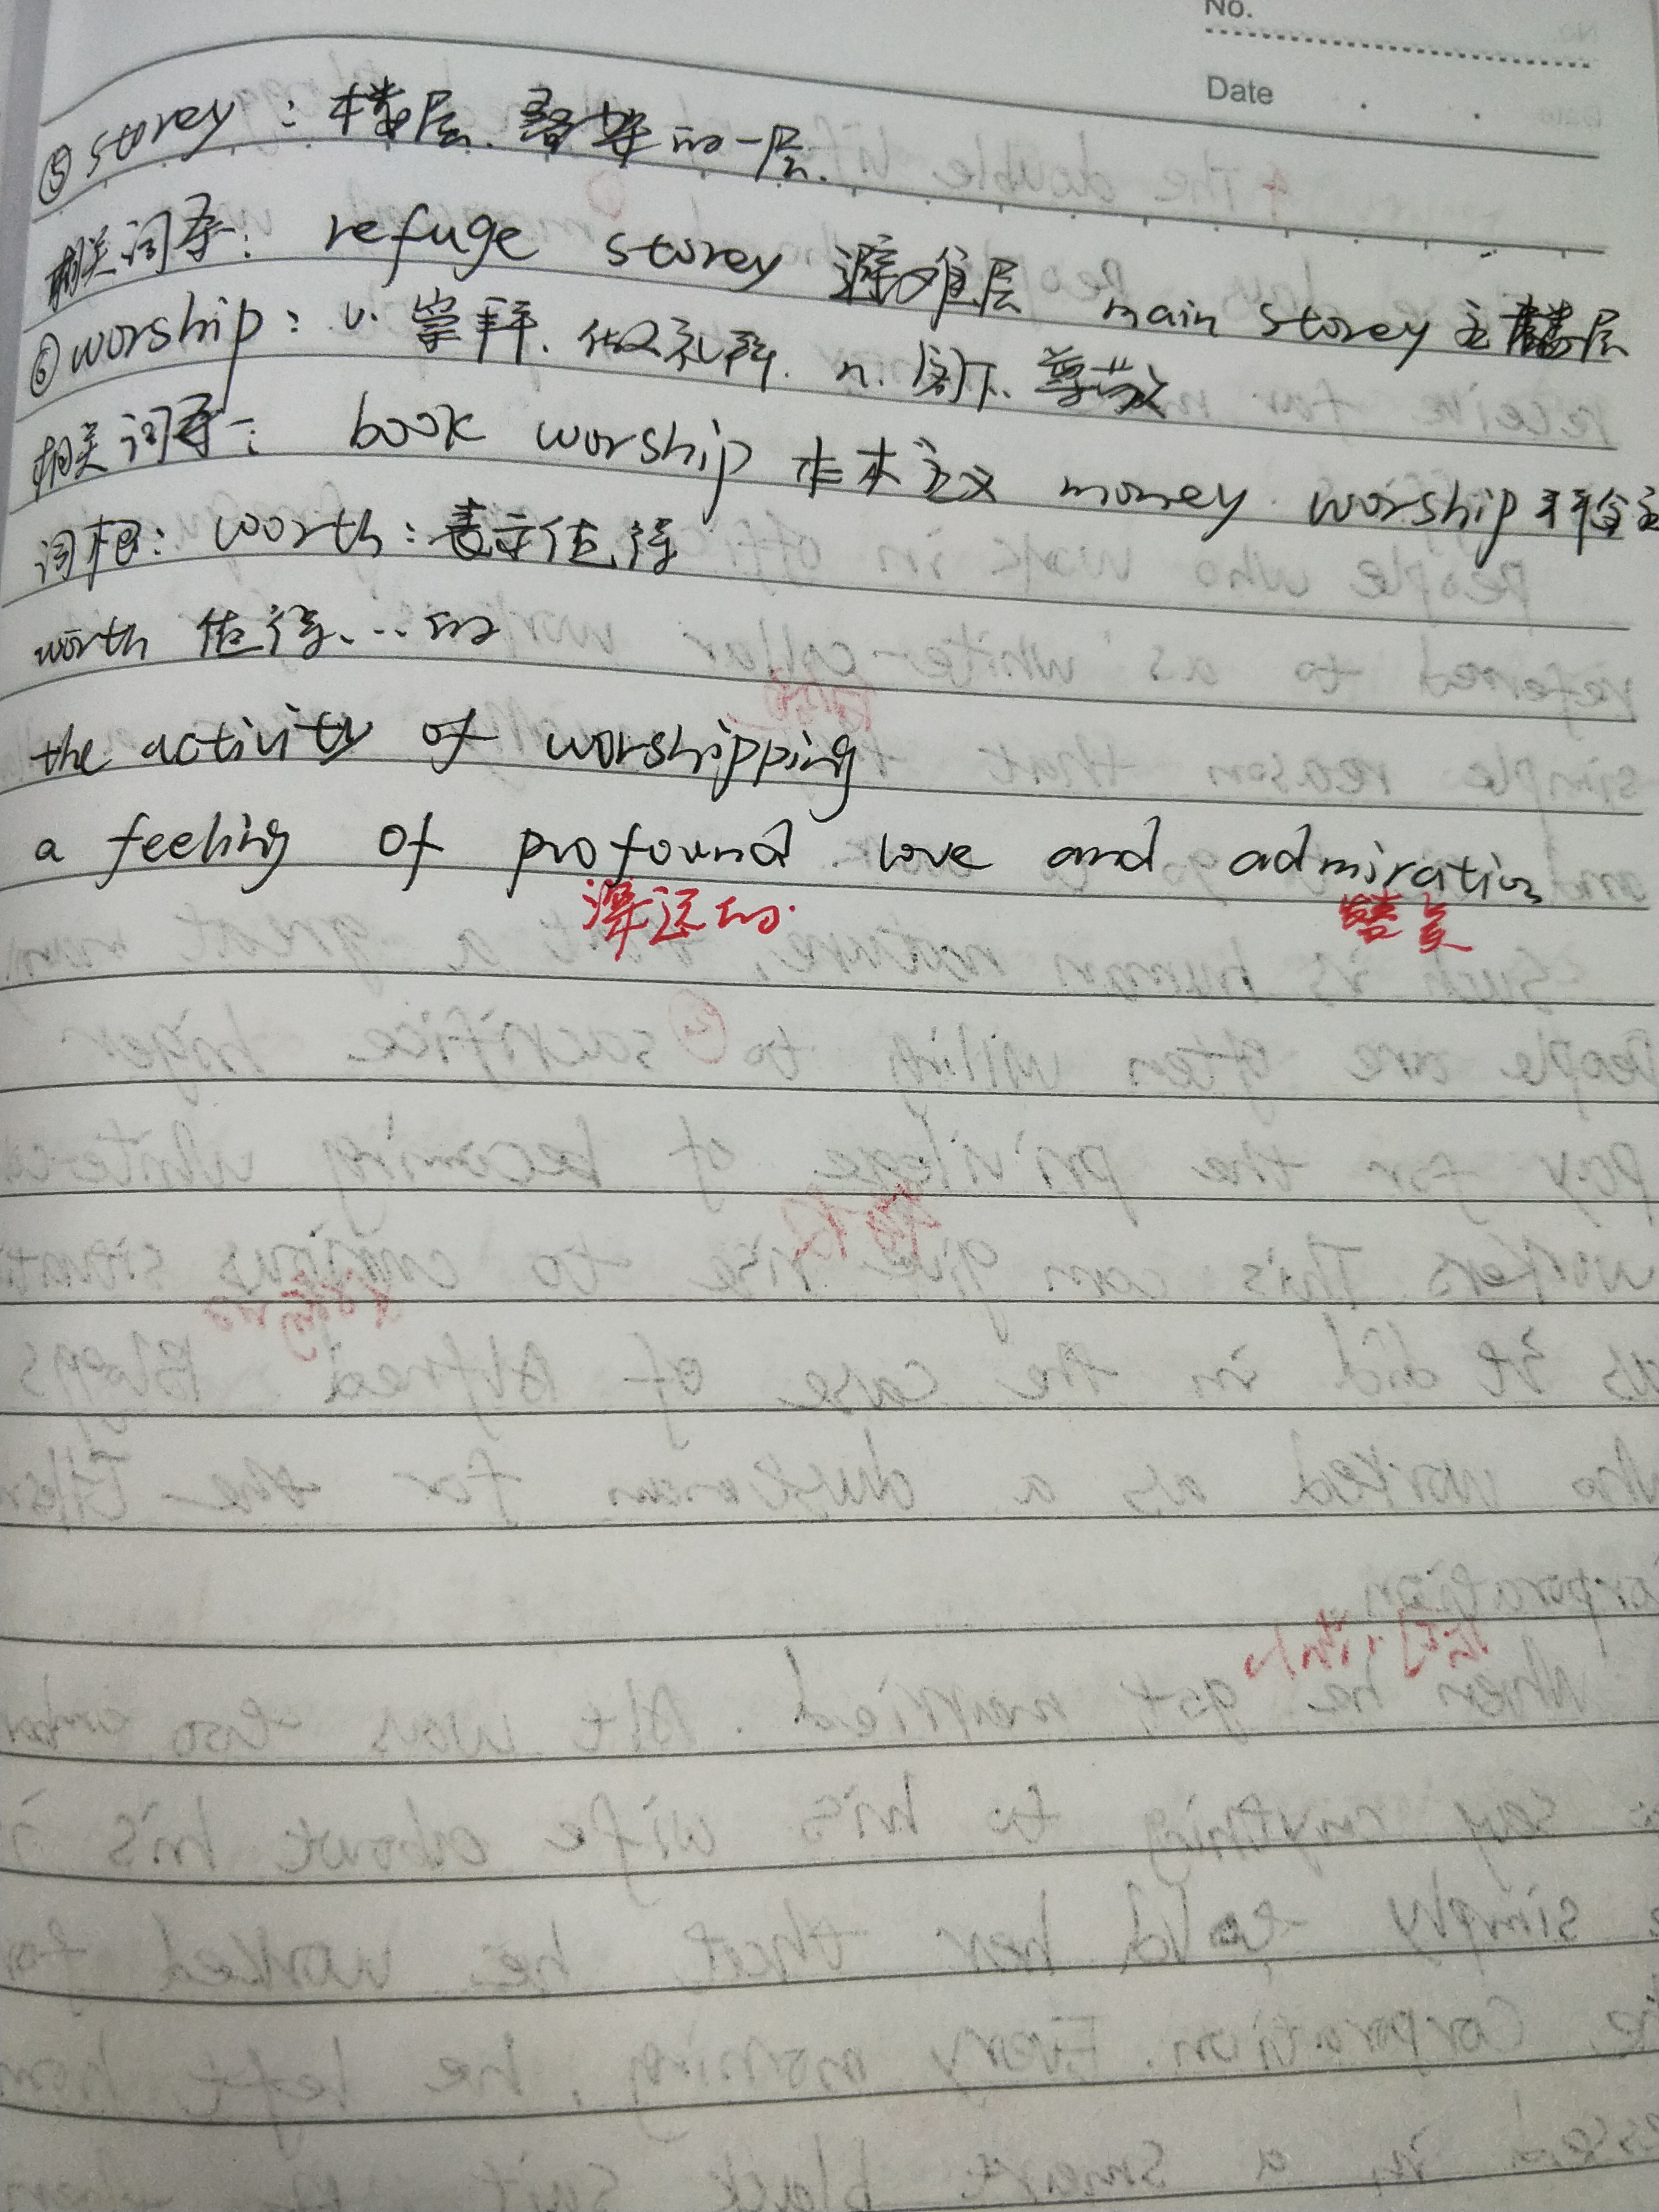 No.
Date
⑤storey：楼层.叠架的一层.
相关词条：refuge storey 避难层 main storey 主楼层
⑥worship：v.崇拜.做礼拜. n.阁下.尊敬
相关词条：book worship 本本主义 money worship 拜金主
词根：worth：表示值得
worth 值得...的
the activity of worshipping
a feeling of profound love and admiration
深远的. 赞美